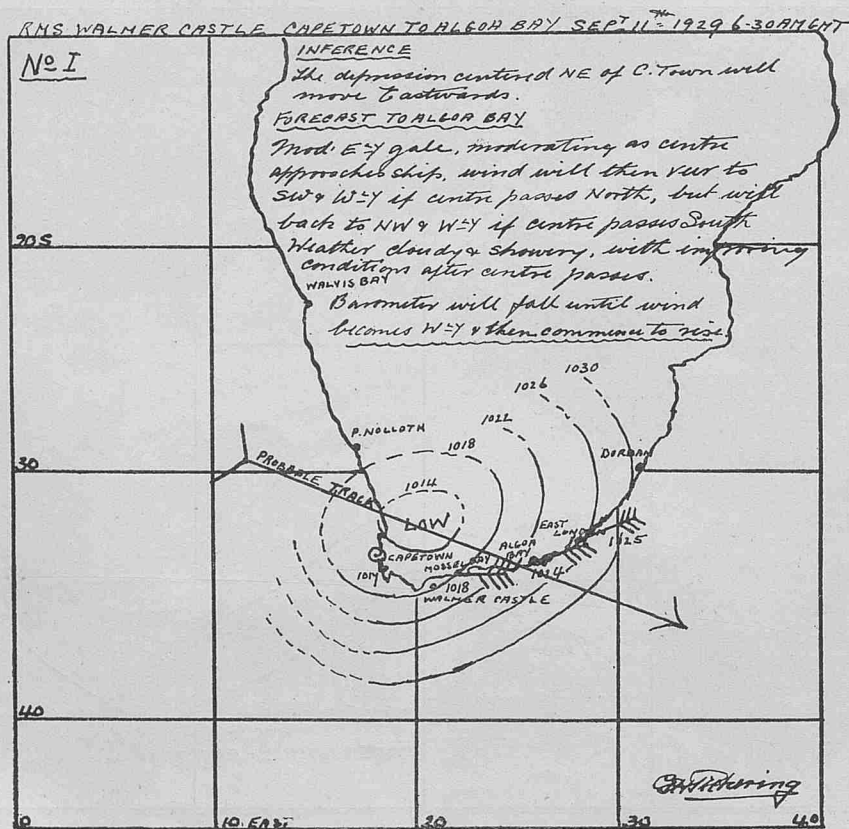 RMS WALMER CASTLE CAPETOWN TO ALGOA BAY SEPT 11TH 1929 6-30AM GMT
No I
INFERENCE
The depression centered NE of C. Town will
move Eastwards.
FORECAST TO ALGOA BAY
Mod. E-Y gale, moderating as centre
approaches ship, wind will then veer to
SW & W-Y if centre passes North, but will
back to NW & W-Y if centre passes South
Weather cloudy & showery, with improving
conditions after centre passes.
Barometer will fall until wind
becomes W-Y & then commence to rise
20S
WALVIS BAY
1030
1026
1022
1018
1014
P. NOLLOTH
DURBAN
30
PROBABLE TRACK
LOW
EAST LONDON
ALGOA BAY
MOSSEL BAY
CAPETOWN
1025
1024
1017
1018
WALMER CASTLE
40
Pickering
0
10 EAST
20
30
40